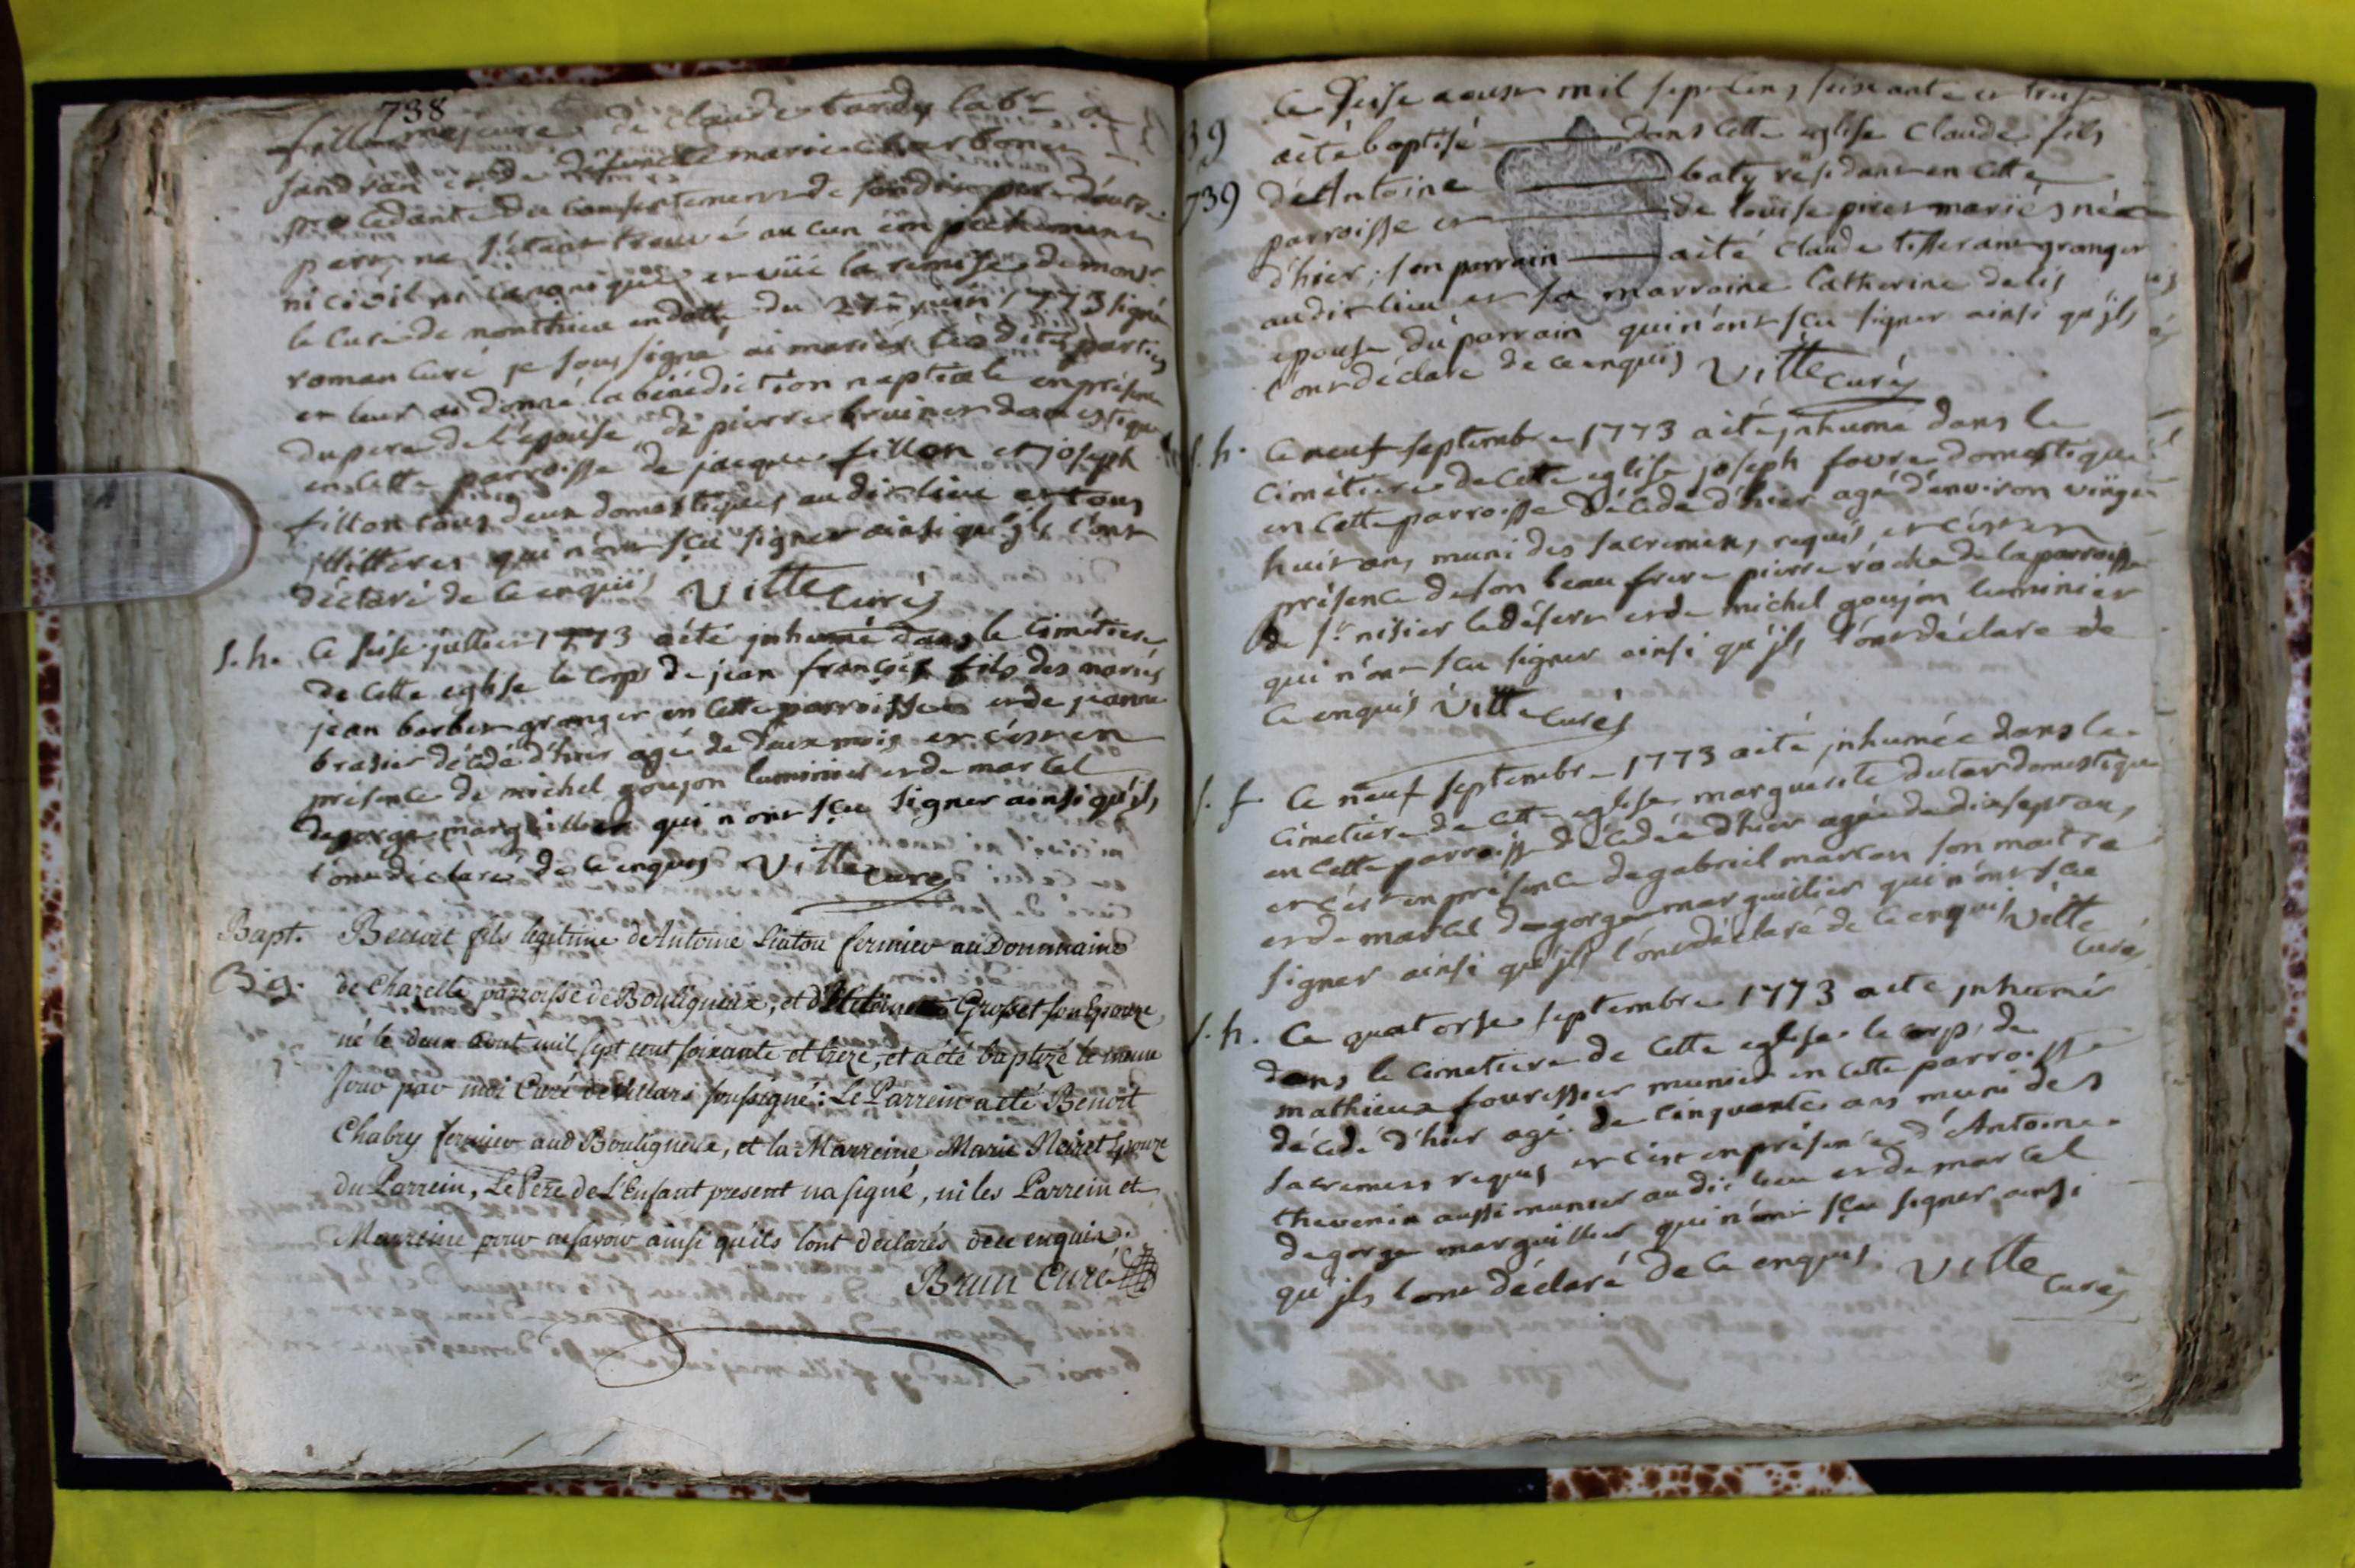 738
fille majeure de claude tardy labr a
sandran et de defuncte marie charbonet
procedante du consentement de son dit pere d'autre
part, ne s'étant trouvé aucun empechement
ni civil ni canonique et vüe la remise de monsr
le curé de monthieu en datte du 27e juin 1773 signé
roman curé je soussigné ai marié les dites parties
et leur ai donné la bénédiction nuptiale en présence
du pere de l'epouse, de pierre bruines domestique
en cette parroisse de jacques fillon et joseph
fillon tous deux domestiques au dit lieu et tous
illitteres qui n'ont sçu signer ainsi qu'jls l'ont
déclaré de ce enquis Ville curé
s. h. Ce seise juillet 1773 aété jnhumé dans le cimétiere
de cette eglise le corps de jean françois fils des mariés
jean barbet granger en cette parroisse et de jeanne
brasier décédé d'hier agé de deux mois et c'est en
présence de michel goujon luminier et de marcel
degorge marguillier qui n'ont sçu signer ainsi qu'jls
l'ont déclaré de ce enquis Ville curé
Bapt. Benoit fils légitime de Antoine fermier au Dommaine
Big. de Charelle parroisse de Bouligneux, et d' Grosset son Epouze,
né le deux aout mil sept cent soixante et treze, et a été baptizé le meme
jour par moi Curé de Villars soussigné: Le Parrein a eté Benoit
Chabry fermier aud Bouligneux, et la Marreine Marie Noiret Epouze
du Parrein, Le Pere de L'Enfant present na signé, ni les Parrein et
Marreine pour ne savoir ainsi quils lont declarés de ce enquis.
Brun Curé
Ce seise aoust mil sept cens soisante et treise
39 aété baptisé dans cette eglise Claude fils
739 de Antoine baty résidant en cette
parroisse et de louise mariés né
d'hier; son parrain aété Claude tisserant granger
audit lieu et sa marraine Catherine delis
epouse du parrain qui n'ont sçu signer ainsi qu'jls
l'ont déclaré de ce enquis Ville curé
s. h. Ce neuf septembre 1773 aété jnhumé dans le
cimétiere de cette eglise joseph fovre domestique
en cette parroisse décédé d'hier agé d'environ vingt
huit ans muni des sacremens requis et c'est en
présence de son beau frere pierre roche de la parroisse
de st nisier le désert et de michel goujon luminier
qui n'ont sçu signer ainsi qu'jls l'ont déclaré de
ce enquis Ville curé
s. f. Ce neuf septembre 1773 aété jnhumée dans le
cimetiere de cette eglise marguerite dutar domestique
en cette parroisse décédée d'hier agée de dix sept ans,
et c'est en présence de gabriel marlon son maitre
et de marcel degorge marguillier qui n'ont sçu
signer ainsi qu'jls l'ont déclaré de ce enquis Ville
curé
s. h. Ce quatorse septembre 1773 aété jnhumé
dans le cimetiere de cette eglise le corps de
mathieux munier en cette parroisse
décédé d'hier agé de cinquante ans muni des
sacremens requis et c'est en présence d'Antoine
thevenin aussi munier au dit lieu et de marcel
degorge marguillier qui n'ont sçu signer ainsi
qu'jls l'ont déclaré de ce enquis Ville
curé